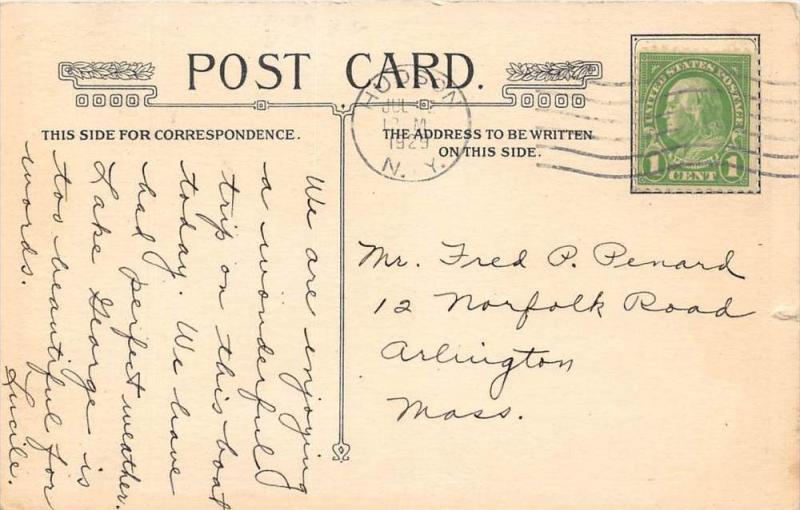 POST CARD.
THIS SIDE FOR CORRESPONDENCE.
THE ADDRESS TO BE WRITTEN
ON THIS SIDE.
HUDSON
JUL
M
1929
N. Y.
UNITED STATES POSTAGE
1 CENT 1
We are enjoying
a wonderful
trip on this boat
today. We have
had perfect weather.
Lake George is
too beautiful for
words.
Lucile.
Mr. Fred P. Penard
12 Norfolk Road
Arlington
Mass.